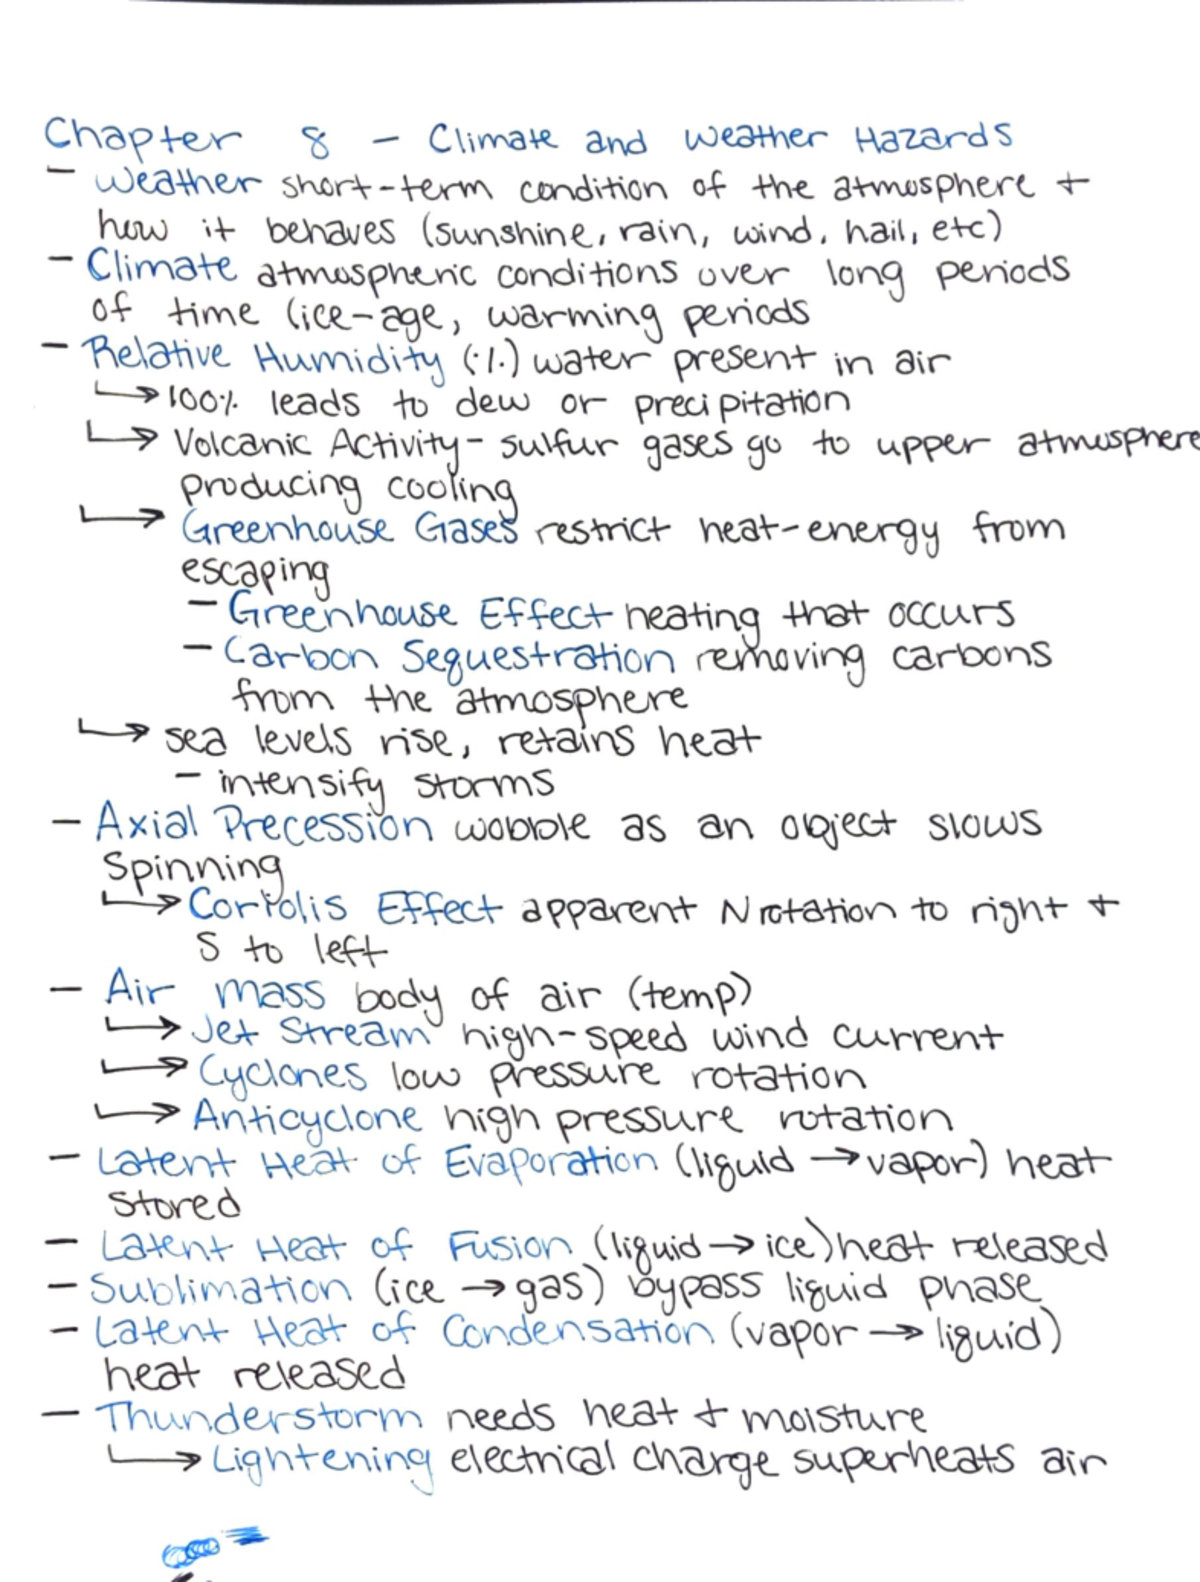 Chapter 8 - Climate and Weather Hazards
- Weather short-term condition of the atmosphere +
how it behaves (sunshine, rain, wind, hail, etc)
- Climate atmospheric conditions over long periods
of time (ice-age, warming periods
- Relative Humidity (%) water present in air
↳ 100% leads to dew or precipitation
↳ Volcanic Activity - sulfur gases go to upper atmosphere
producing cooling
↳ Greenhouse Gases restrict heat-energy from
escaping
- Greenhouse Effect heating that occurs
- Carbon Sequestration removing carbons
from the atmosphere
↳ sea levels rise, retains heat
- intensify storms
- Axial Precession wobble as an object slows
Spinning
↳ Coriolis Effect apparent N rotation to right +
S to left
- Air mass body of air (temp)
↳ Jet Stream high-speed wind current
↳ Cyclones low pressure rotation
↳ Anticyclone high pressure rotation
- Latent Heat of Evaporation (liquid → vapor) heat
stored
- Latent Heat of Fusion (liquid → ice) heat released
- Sublimation (ice → gas) bypass liquid phase
- Latent Heat of Condensation (vapor → liquid)
heat released
- Thunderstorm needs heat + moisture
↳ Lightening electrical charge superheats air